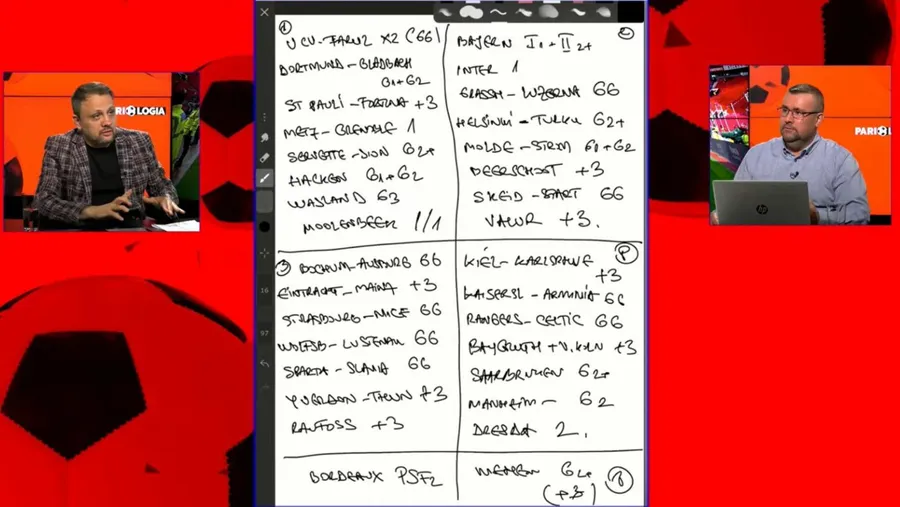 PARI LOGIA
1
X2 (66)
DORTMUND - GLADBACH
G1+G2
ST PAULI - FORTUNA +3
METZ - GRENOBLE 1
SERVETTE - SION G2+
HACKEN G1+G2
WASLAND G3
MOOLENBEEK 1/1
2
BAJERN I1+II2+
INTER 1
GRASSH - LUZERNA GG
HELSINKI - TURKU G2+
MOLDE - STRM G1+G2
BEERSCHOT +3
SKEID - START GG
VALUR +3.
3
BOCHUM - AUGSBURG GG
EINTRACHT - MAINZ +3
STRASBOURG - NICE GG
WOLFSB - LUSTENAU GG
SPARTA - SLAVIA GG
YVERDON - THUN +3
RAUFOSS +3
P
KIEL - KARLSRUHE
+3
KAISERSL - ARMINIA GG
RANGERS - CELTIC GG
BAYREUTH +V. KOLN +3
SAARBRUKEN G2+
MANHEIM - G2
DRESDA 2.
BORDEAUX PSF2
G2+
(+3)
hp
PARI LOGIA